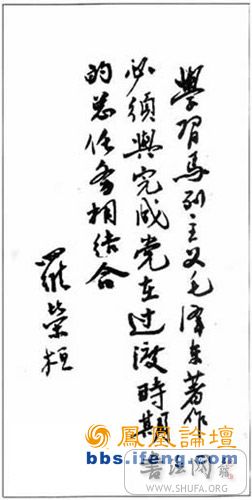 學習馬列主义毛澤东著作
必須與完成党在过渡時期
的总任务相结合
羅榮桓
鳳凰論壇
bbs.ifeng.com
書法网
WWW.SHUFA.ORG